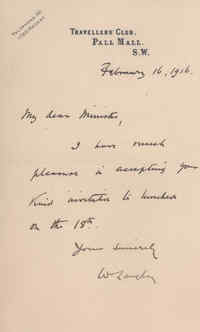 Travellers' Club,
Pall Mall.
S.W.
February 16, 1916.
My dear Minister,
I have much
pleasure in accepting your
kind invitation to luncheon
on the 18th.
Yours sincerely